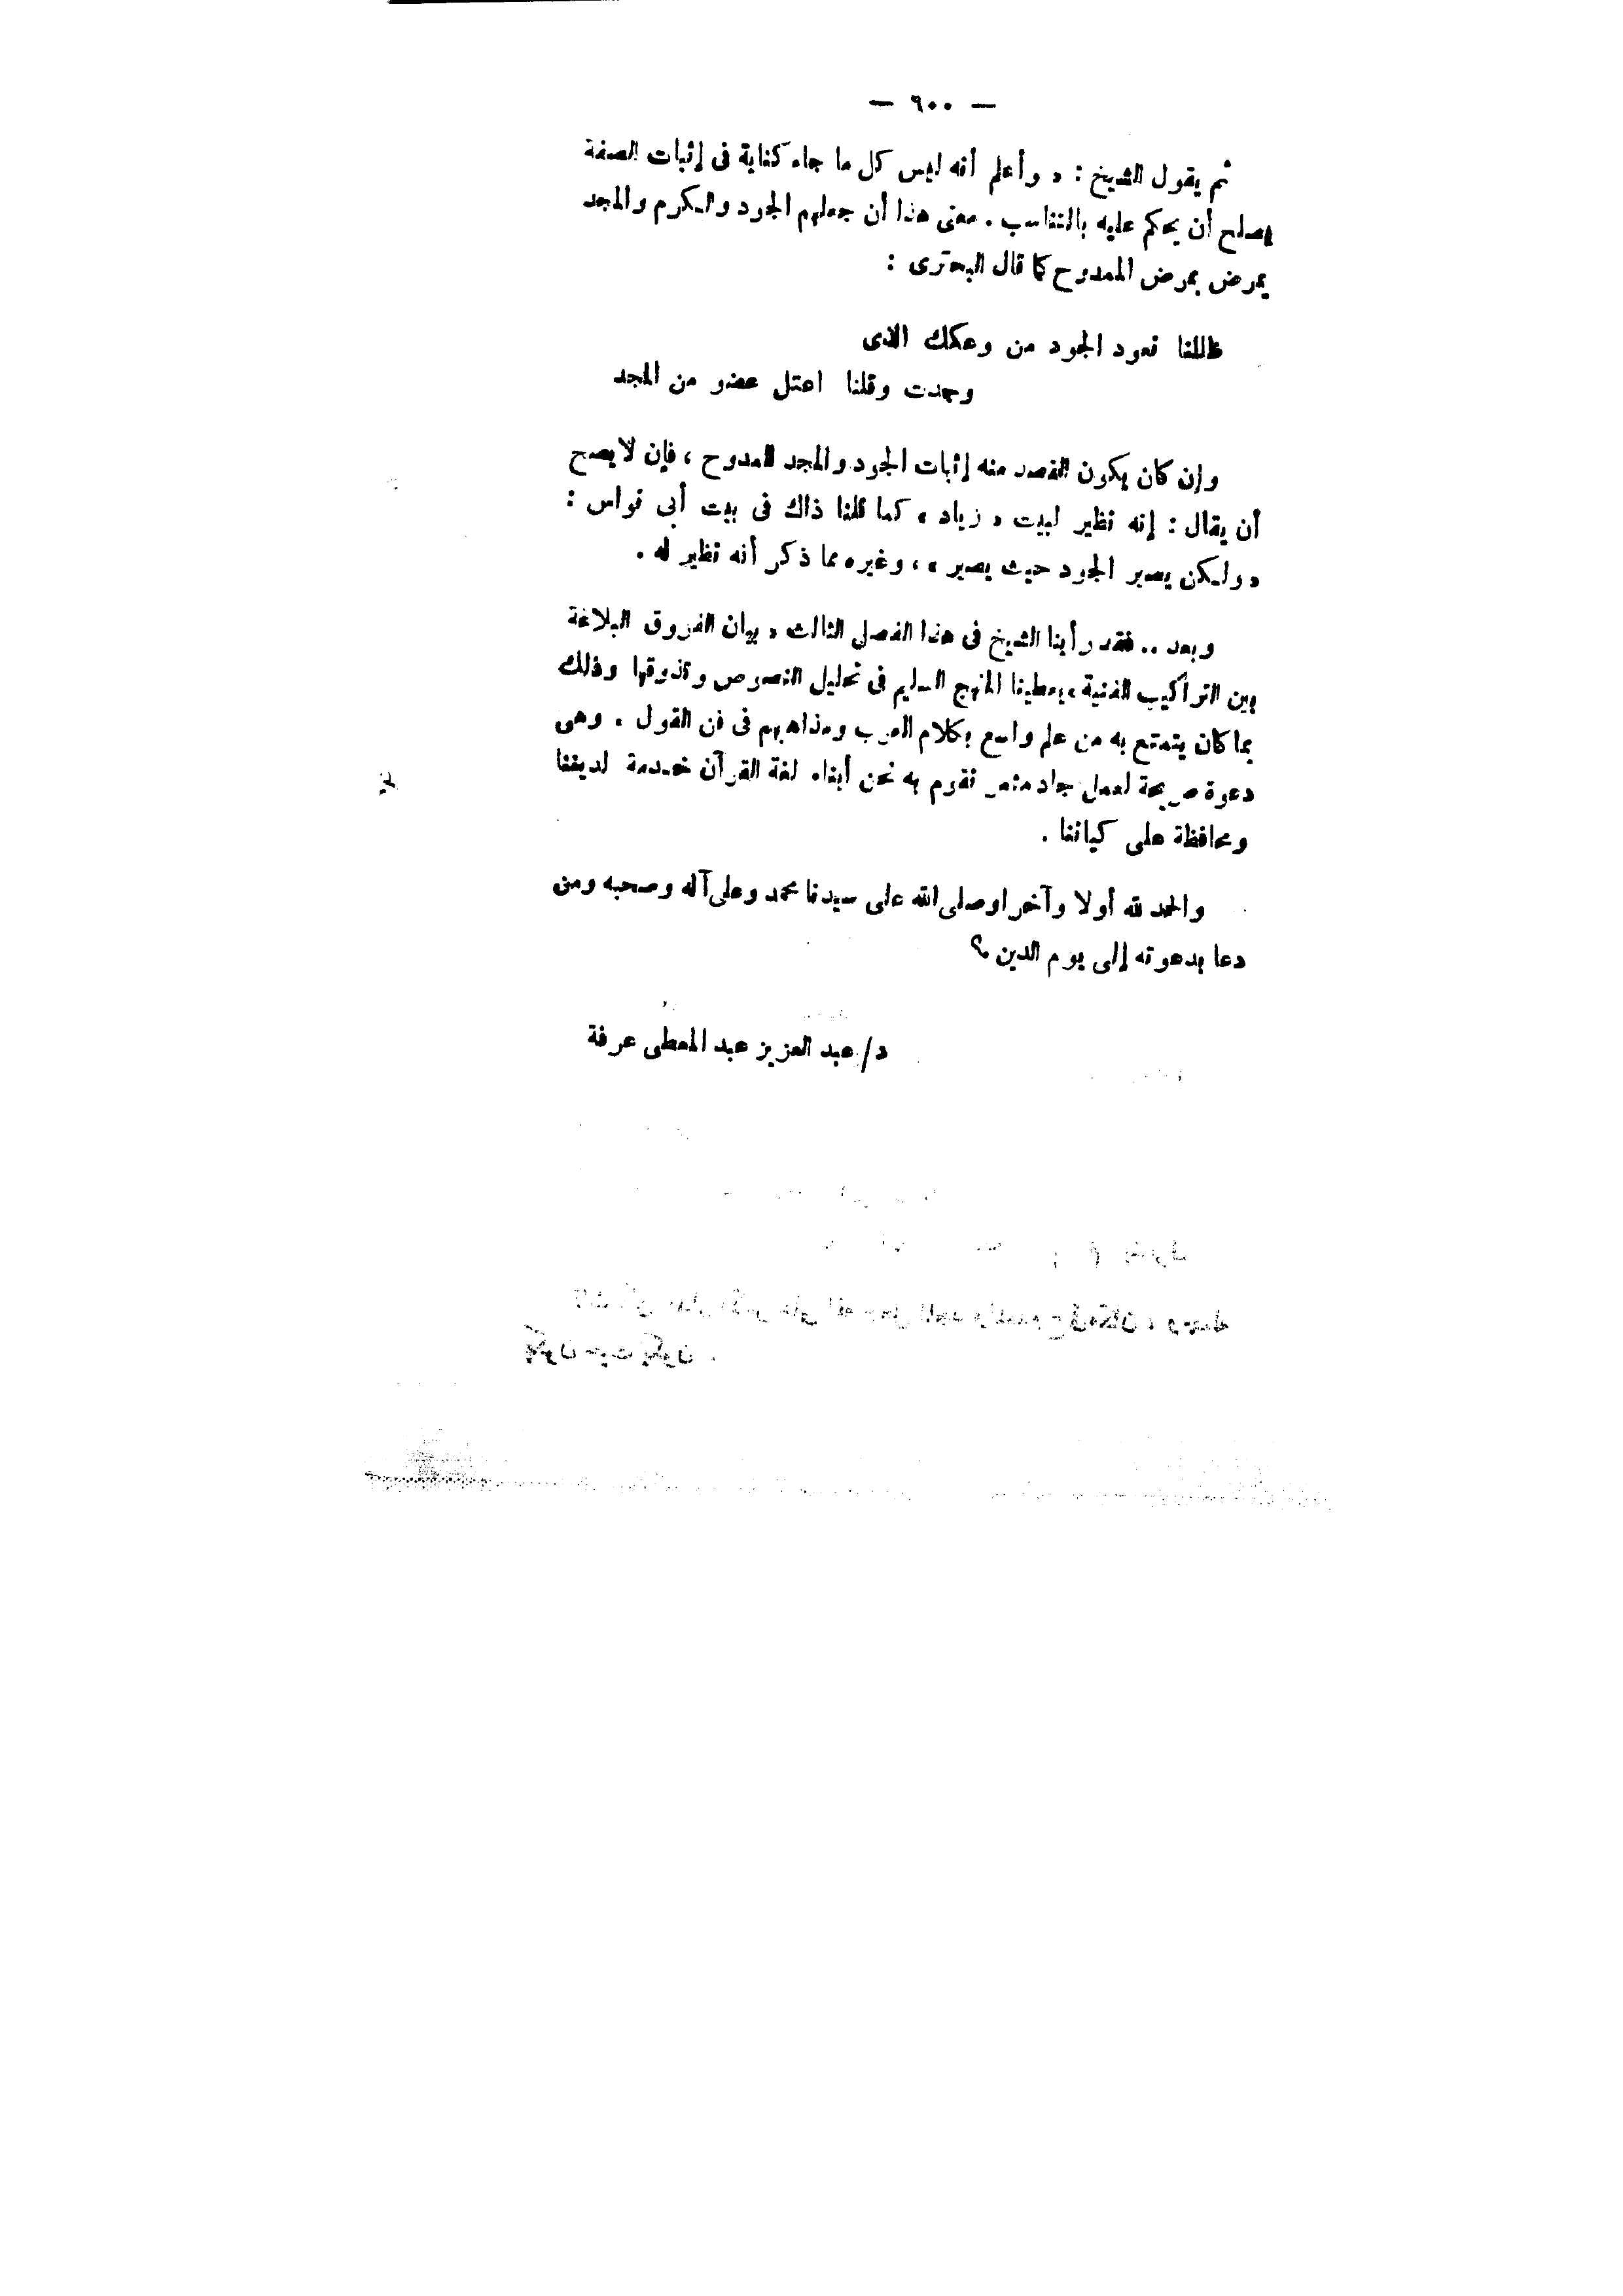 — ٦٠٠ —
ثم يقول الشيخ : « وأعلم أنه ليس كل ما جاء كناية فى إثبات الصفة
يصلح أن يحكم عليه بالتناسب . معنى هذا أن جعلهم الجود والكرم والمجد
يمرض بمرض الممدوح كما قال البحترى :
ظللنا نعود الجود من وعكك الذى
وجدت وقلنا اعتل عضو من المجد
وإن كان يكون القصد منه إثبات الجود والمجد للمدوح ، فإن لا يصح
أن يقال : إنه نظير لبيت « زياد » كما قلنا ذاك فى بيت أبى نواس :
« ولكن يصير الجود حيث يصير » ، وغيره مما ذكر أنه نظير له .
وبعد .. فقد رأينا الشيخ فى هذا الفصل الثالث « بيان الفروق البلاغة
بين التراكيب الفنية » يعطينا المنهج السليم فى تحليل النصوص وتذوقها وذلك
بما كان يتمتع به من علم واسع بكلام العرب ومذاهبهم فى فن القول . وهى
دعوة صريحة لعمل جاد مثمر نقوم به نحن أبناء لغة القرآن خدمة لديننا
ومحافظة على كياننا .
والحمد لله أولا وآخرا وصلى الله على سيدنا محمد وعلى آله وصحبه ومن
دعا بدعوته إلى يوم الدين ؟
د/ عبد العزيز عبد المعطى عرفة